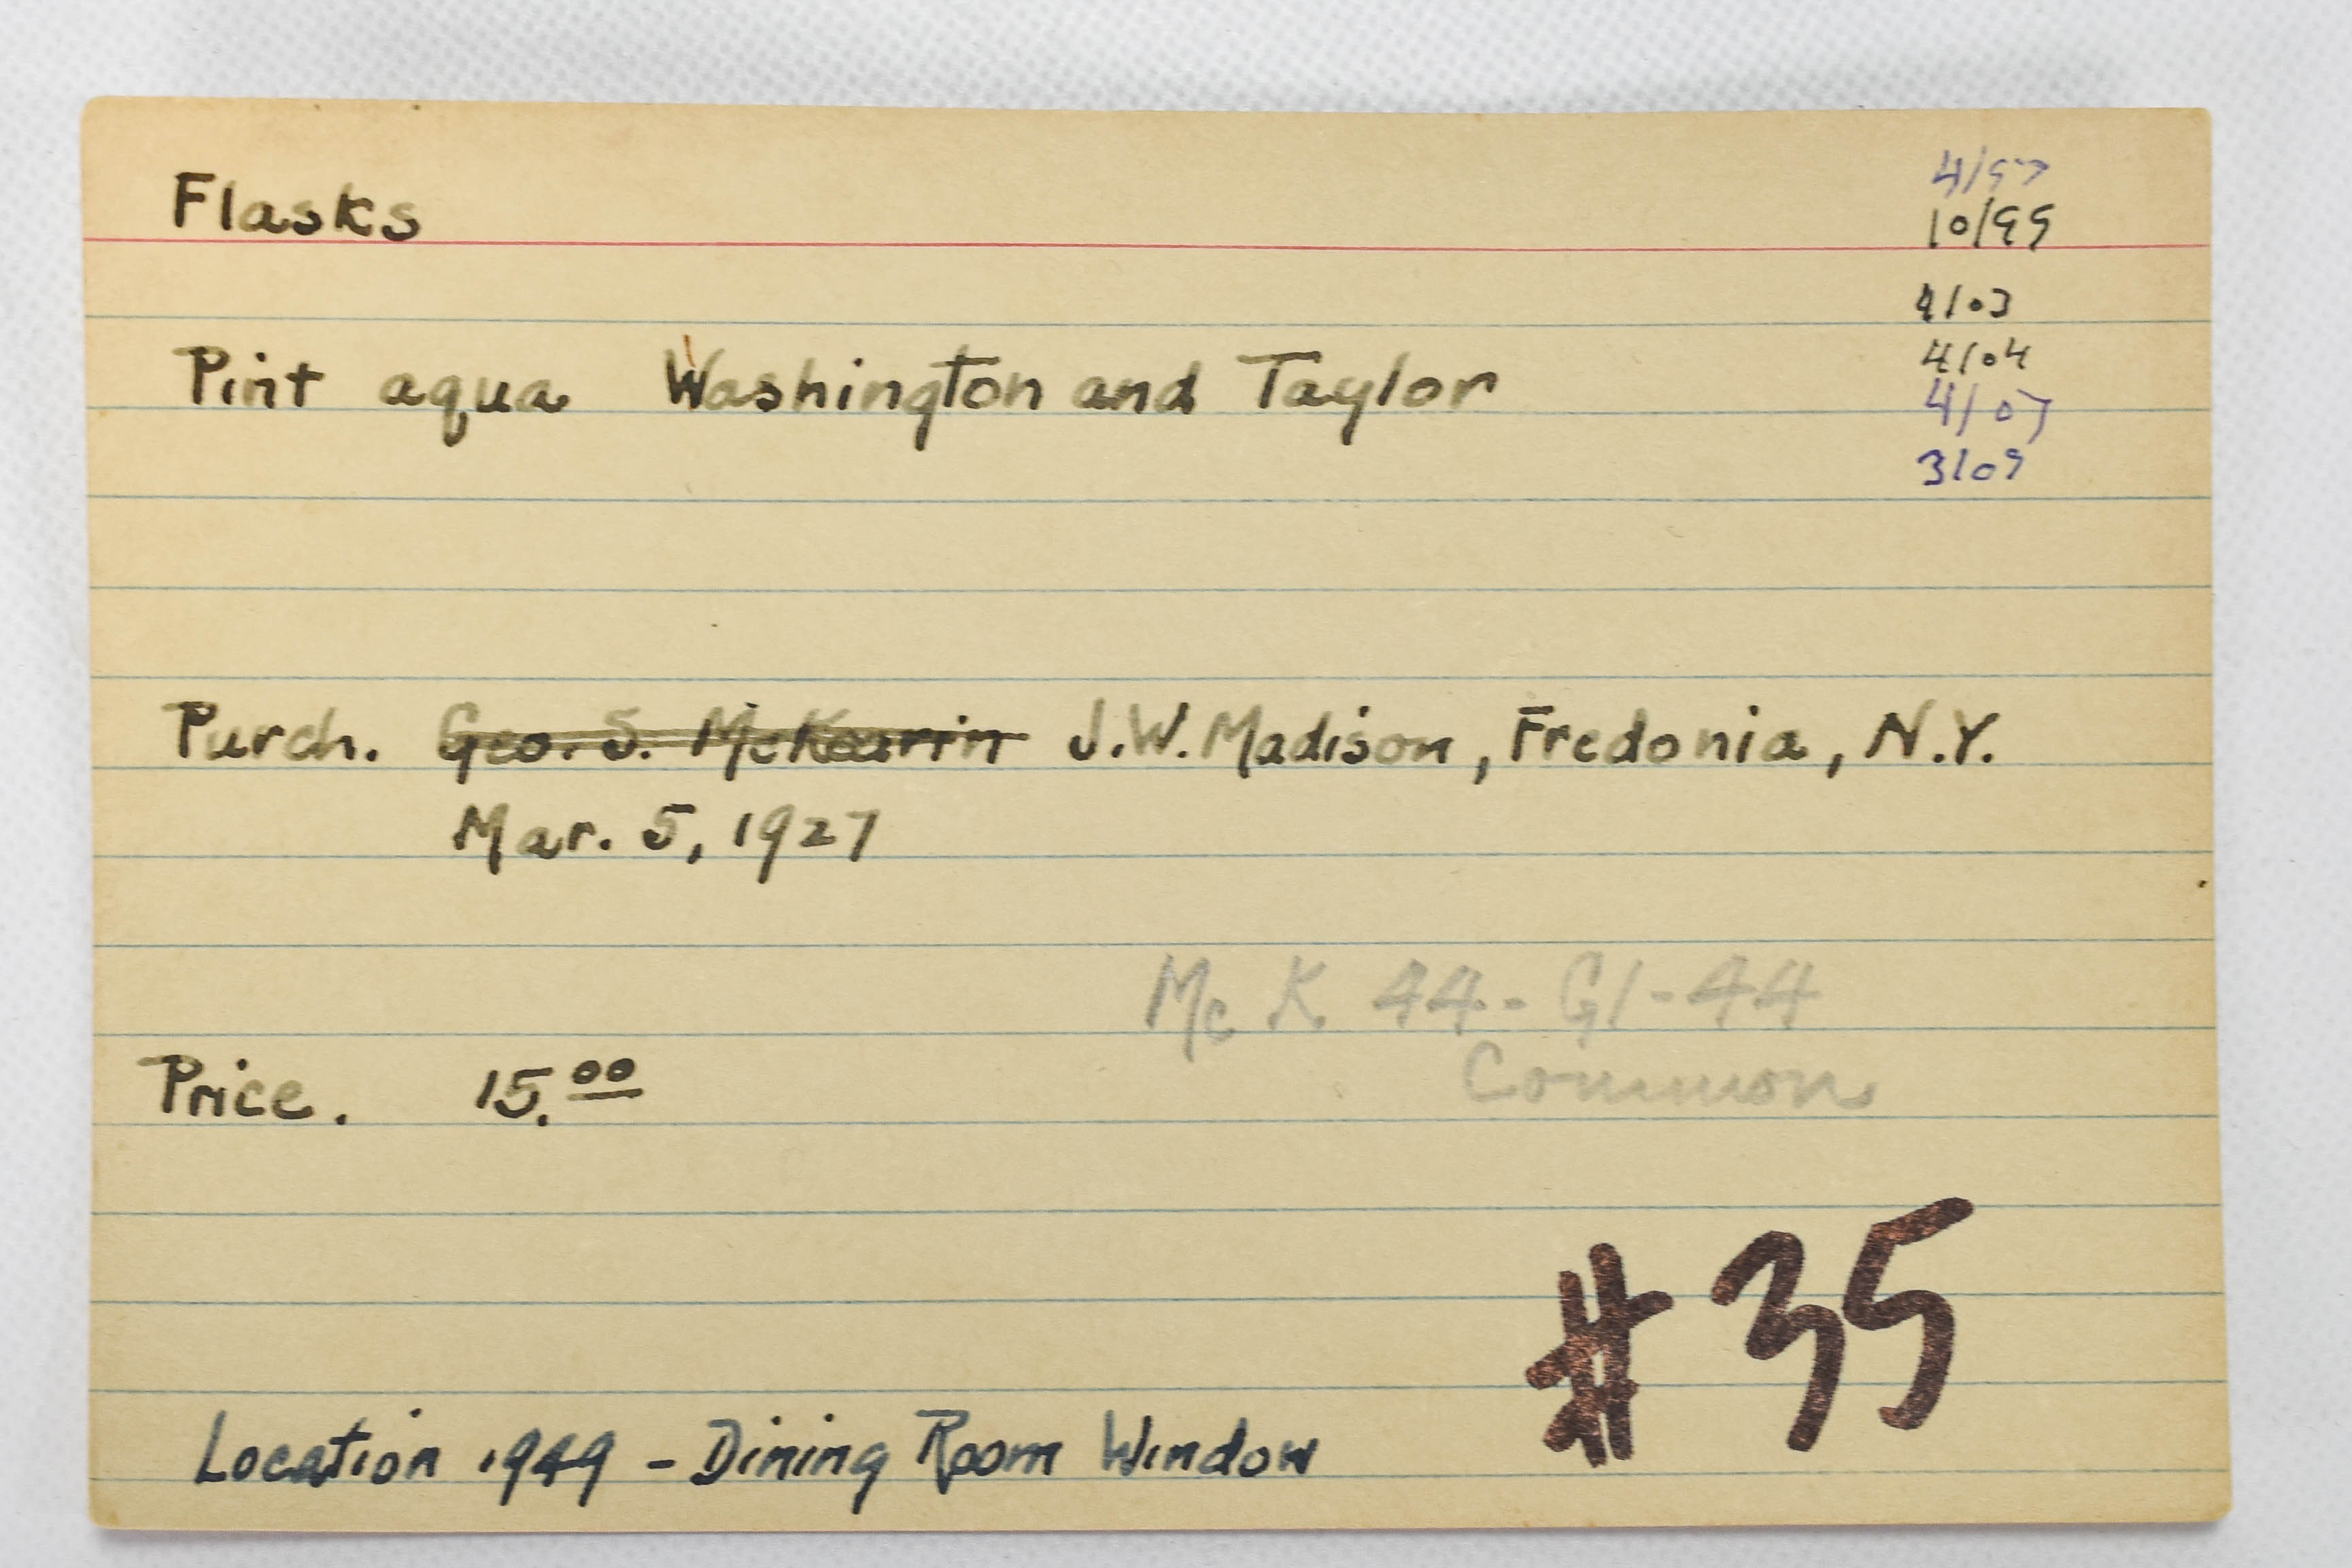 Flasks
4/97
10/99
4/03
4/04
4/07
3/09
Pint aqua Washington and Taylor
Purch. Geo. S. McKearin J.W. Madison, Fredonia, N.Y.
Mar. 5, 1927
Mc K 44 - G1-44
Common
Price. 15.00
#35
Location 1949 - Dining Room Window